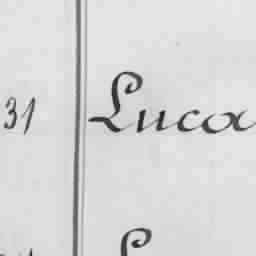 31 Luca